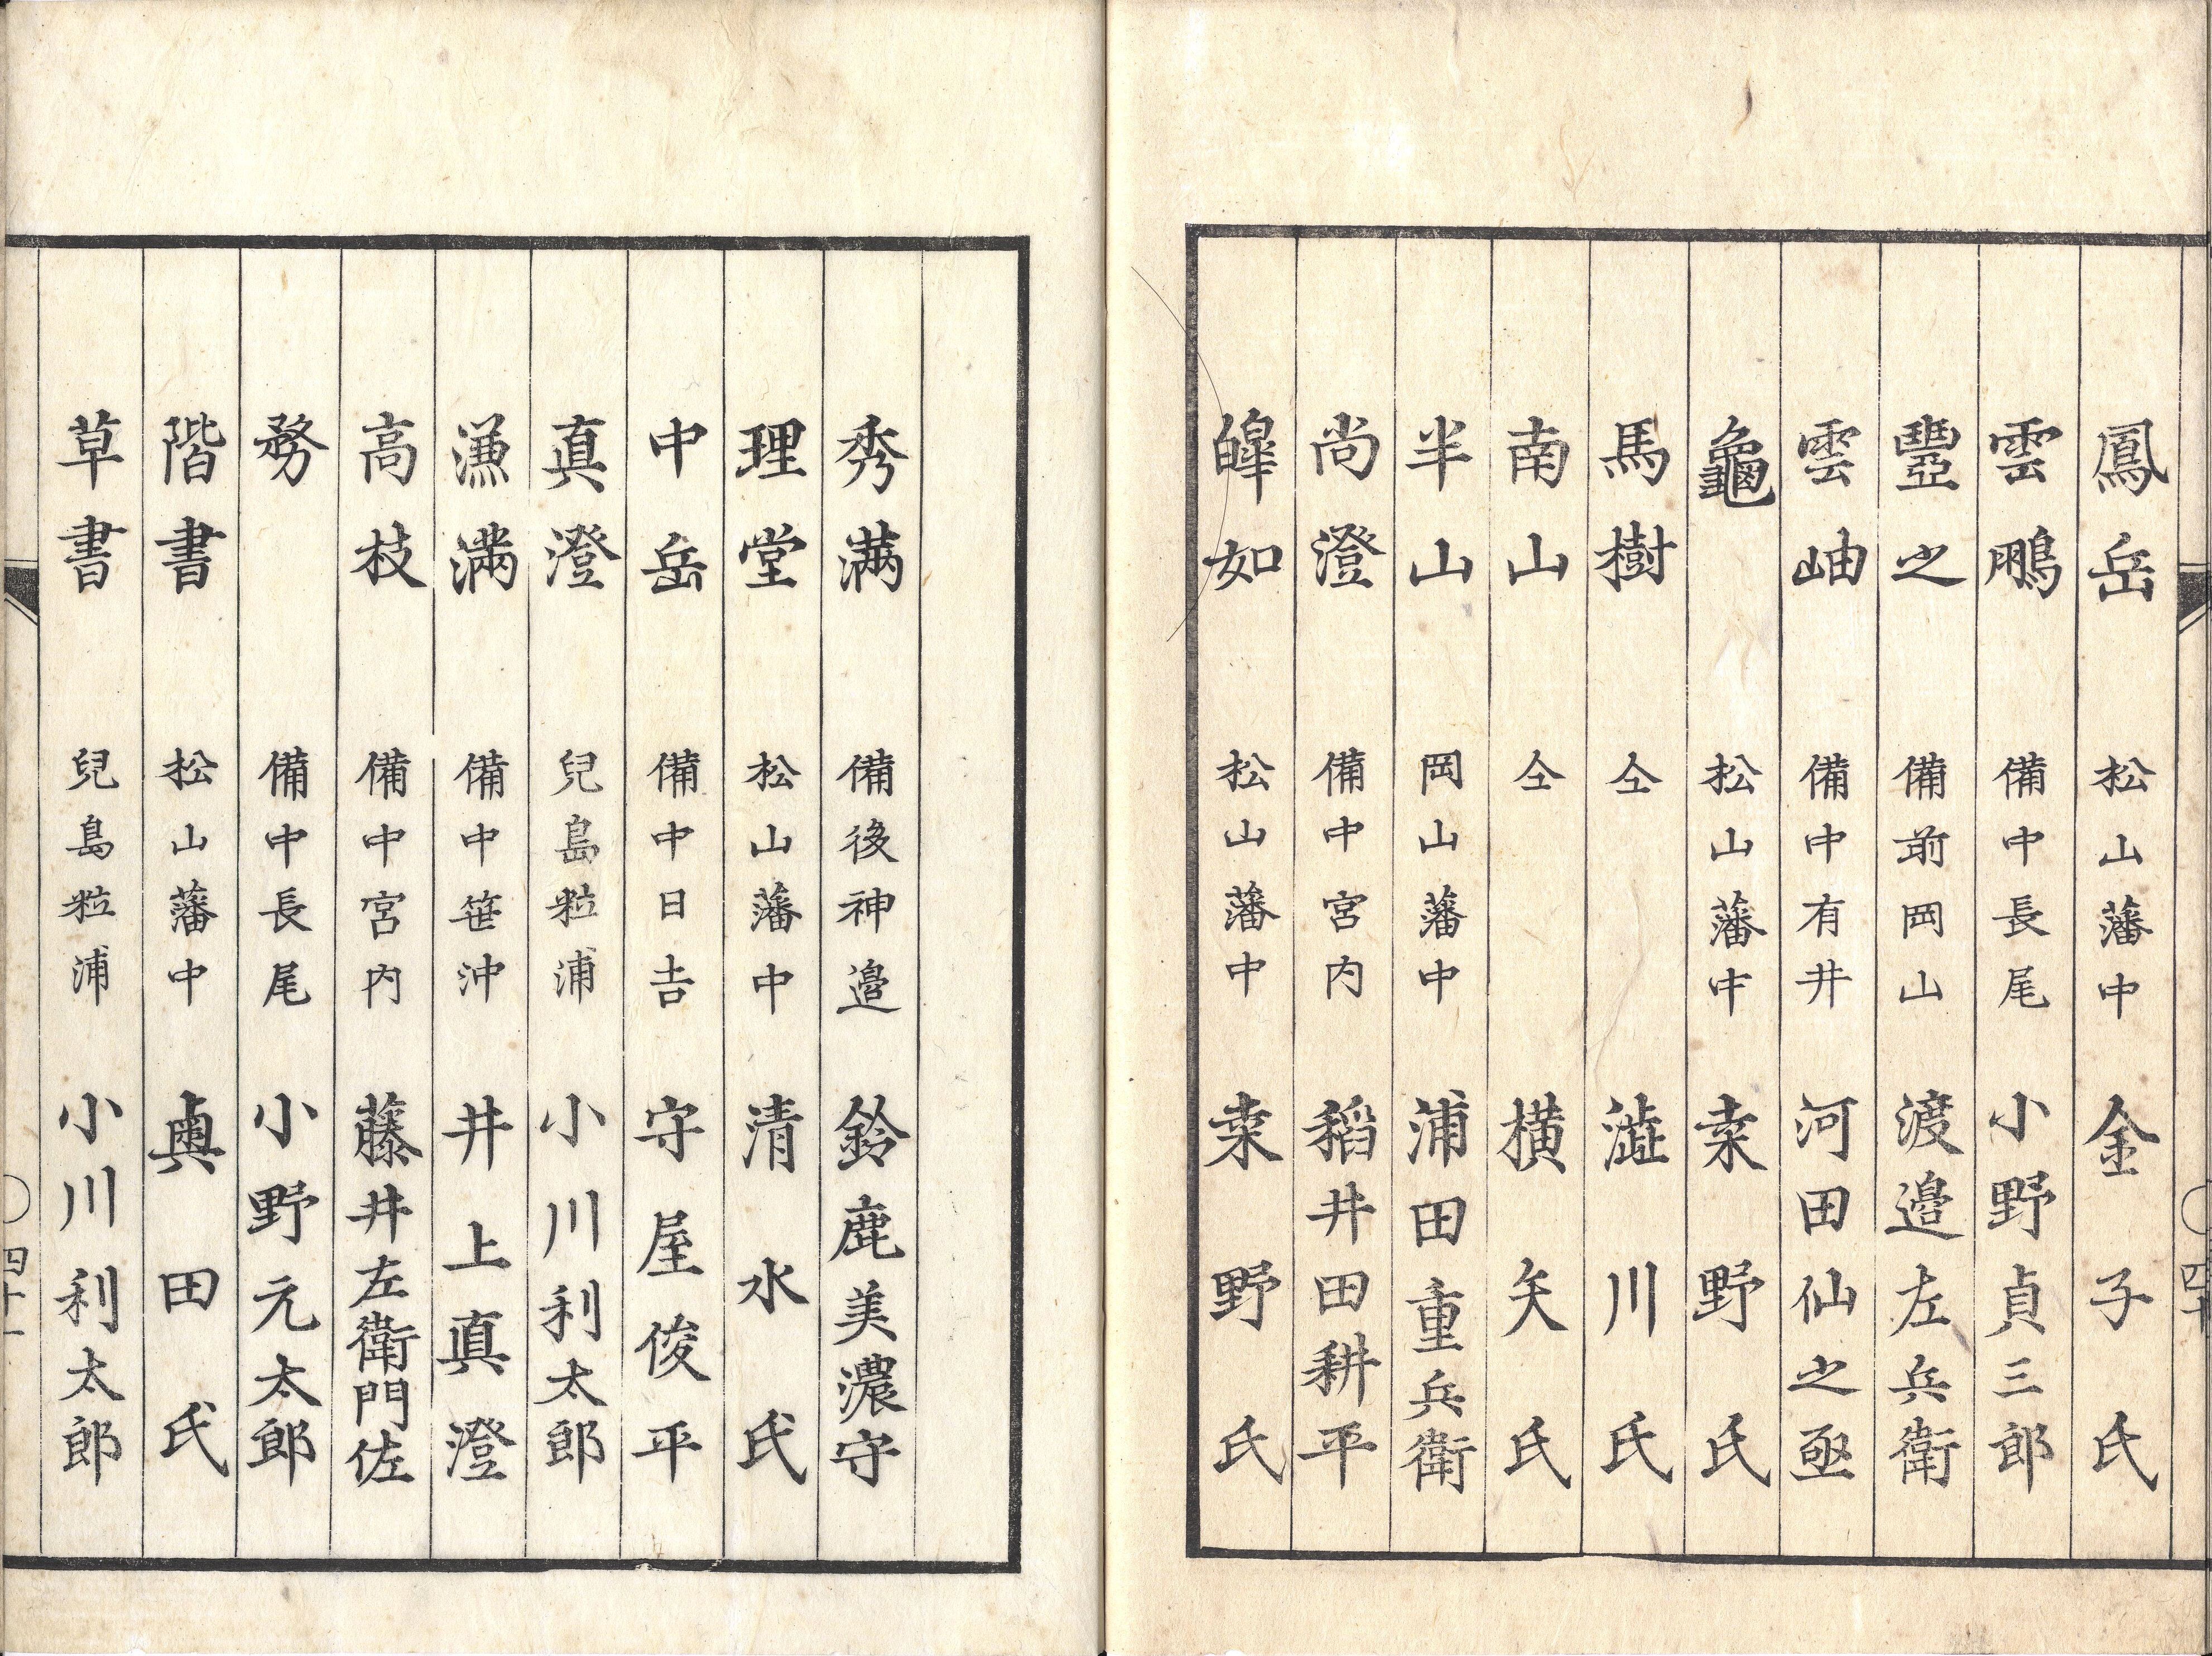 鳳岳 松山藩中 金子氏
雲鵬 備中長尾 小野貞三郎
豐之 備前岡山 渡邉左兵衛
雲岫 備中有井 河田仙之亟
龜 松山藩中 桒野氏
馬樹 仝 澁川氏
南山 仝 横矢氏
半山 岡山藩中 浦田重兵衛
尚澄 備中宮内 稻井田耕平
皞如 松山藩中 桒野氏
四十
秀満 備後神邉 鈴鹿美濃守
理堂 松山藩中 清水氏
中岳 備中日吉 守屋俊平
真澄 兒島粒浦 小川利太郎
濂満 備中笹沖 井上真澄
高枝 備中宮内 藤井左衛門佐
務 備中長尾 小野元太郎
階書 松山藩中 奥田氏
草書 兒島粒浦 小川利太郎
四十一